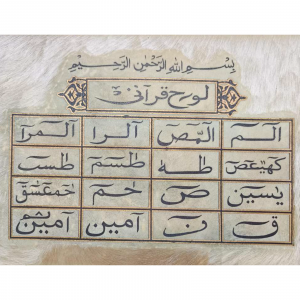 بسم الله الرحمن الرحیم
لوح قرآنی
الم المص الرا المرا
کهیعص طه طسم طست
یسین ص حم حمعسق
ق ن آمین آمین